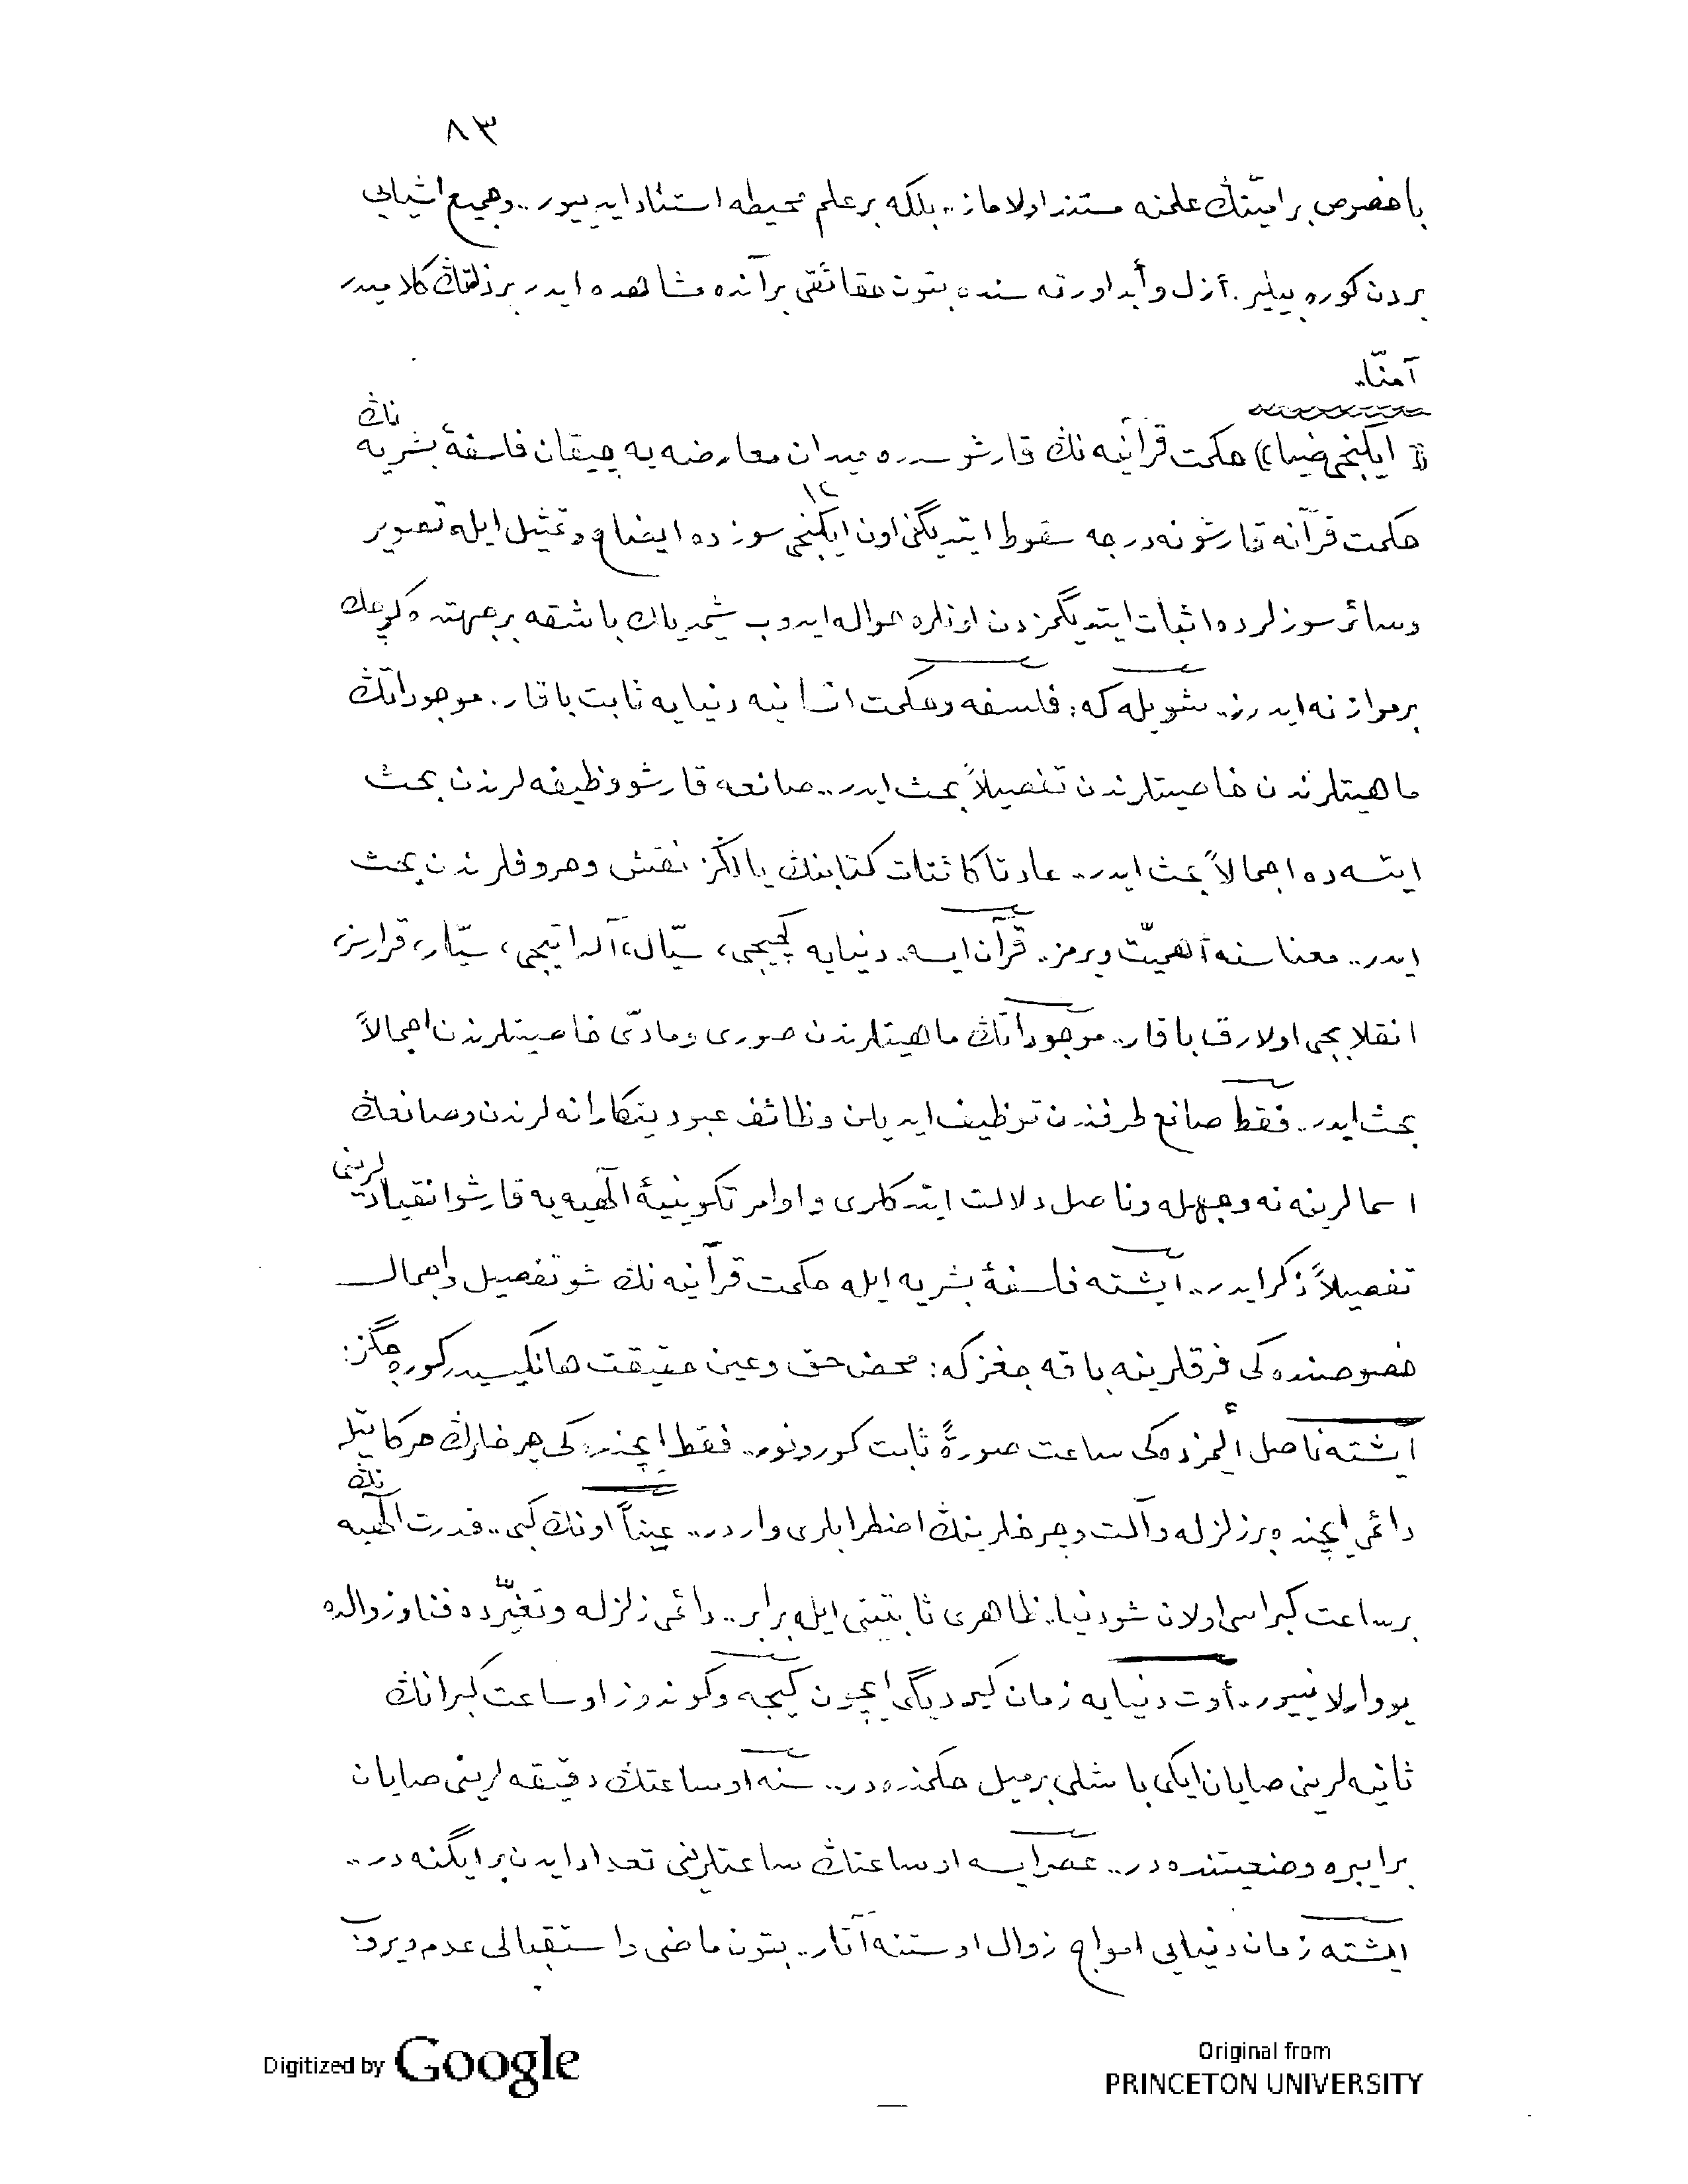 ٨٣
باخصوص بر اميّنڭ علمنه مستند اولاماز.. بلكه بر علم محيطه استناد ايدييور.. وجميع اشيايى
بردن كوره بيلير. أزل وأبد اورته سنده بتون حقائقى بر آنده مشاهده ايدر بر ذاتڭ كلاميدر
آمنّا..
« ايكنجى ضيا » حكمت قرآنيه نڭ قارشوسنده ميدان معارضه يه چيقان فلسفۀ بشريه نڭ
حكمت قرآنه قارشو نه درجه سقوط ايتديگنى اون ايكنجى ١٢ سوزده ايضاح وتمثيل ايله تصوير
وسائر سوزلرده اثبات ايتديگمزدن اونلره حواله ايدوب شيمديلك باشقه بر جهتده كوچك
بر موازنه ايدرز.. شويله كه: فلسفه وحكمت انسانيه دنيايه ثابت باقار. موجوداتڭ
ماهيتلرندن خاصيتلرندن تفصيلاً بحث ايدر.. صانعه قارشو وظيفه لرندن بحث
ايتسه ده اجمالاً بحث ايدر.. عادتا كائنات كتابنڭ يالڭز نقش وحروفلرندن بحث
ايدر.. معناسنه اهميّت ويرمز. قرآن ايسه.. دنيايه كچيجى، سيّال، آلداتيجى، سيّار، قرارسز،
انقلابجى اولارق باقار.. موجوداتڭ ماهيتلرندن صورى ومادّى خاصيتلرندن اجمالاً
بحث ايدر.. فقط صانع طرفندن توظيف ايديلن وظائف عبوديتكارانه لرندن وصانعڭ
اسمالرينه نه وجهله وناصل دلالت ايتدكلرى واوامر تكوينيۀ الٓهيه يه قارشو انقيادلرينى
تفصيلاً ذكر ايدر.. ايشته فلسفۀ بشريه ايله حكمت قرآنيه نڭ شو تفصيل واجمال
خصوصنده كى فرقلرينه باقه جغز كه: محض حق وعين حقيقت هانكيسيدر كوره جگز:
ايشته ناصل ألمزده كى ساعت صورةً ثابت كورونور.. فقط ايچنده كى چرخلرڭ حركاتيله
دائمى ايچنده بر زلزله وآلت وچرخلرينڭ اضطرابلرى واردر.. عيناً اونڭ كبى.. قدرت الٓهيه نڭ
بر ساعت كبراسى اولان شو دنيا.. ظاهرى ثابتيتى ايله برابر.. دائمى زلزله وتغيّرده فنا وزوالده
يووارلانييور.. أوت دنيايه زمان كيرديگى ايچون كيجه وكوندوز او ساعت كبرانڭ
ثانيه لرينى صايان ايكى باشلى بر ميل حكمنده در.. سنه او ساعتڭ دقيقه لرينى صايان
بر ايبره وضعيتنده در.. عصر ايسه او ساعتڭ ساعتلرينى تعداد ايدن بر ايگنه در..
ايشته زمان دنيايى امواج زوال اوستنه آتار.. بتون ماضى واستقبالى عدمه ويروب
Digitized by Google
Original from
PRINCETON UNIVERSITY